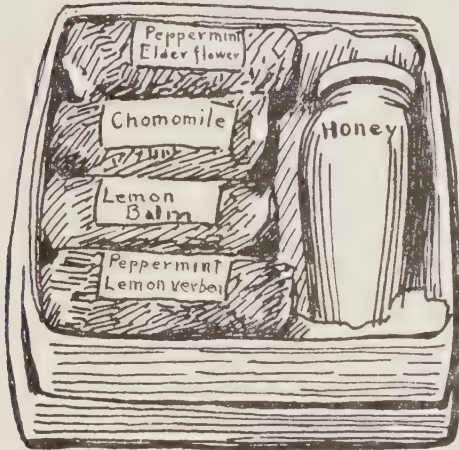 Peppermint
Elderflower
Chomomile
Lemon
Balm
Peppermint
Lemon verben
Honey